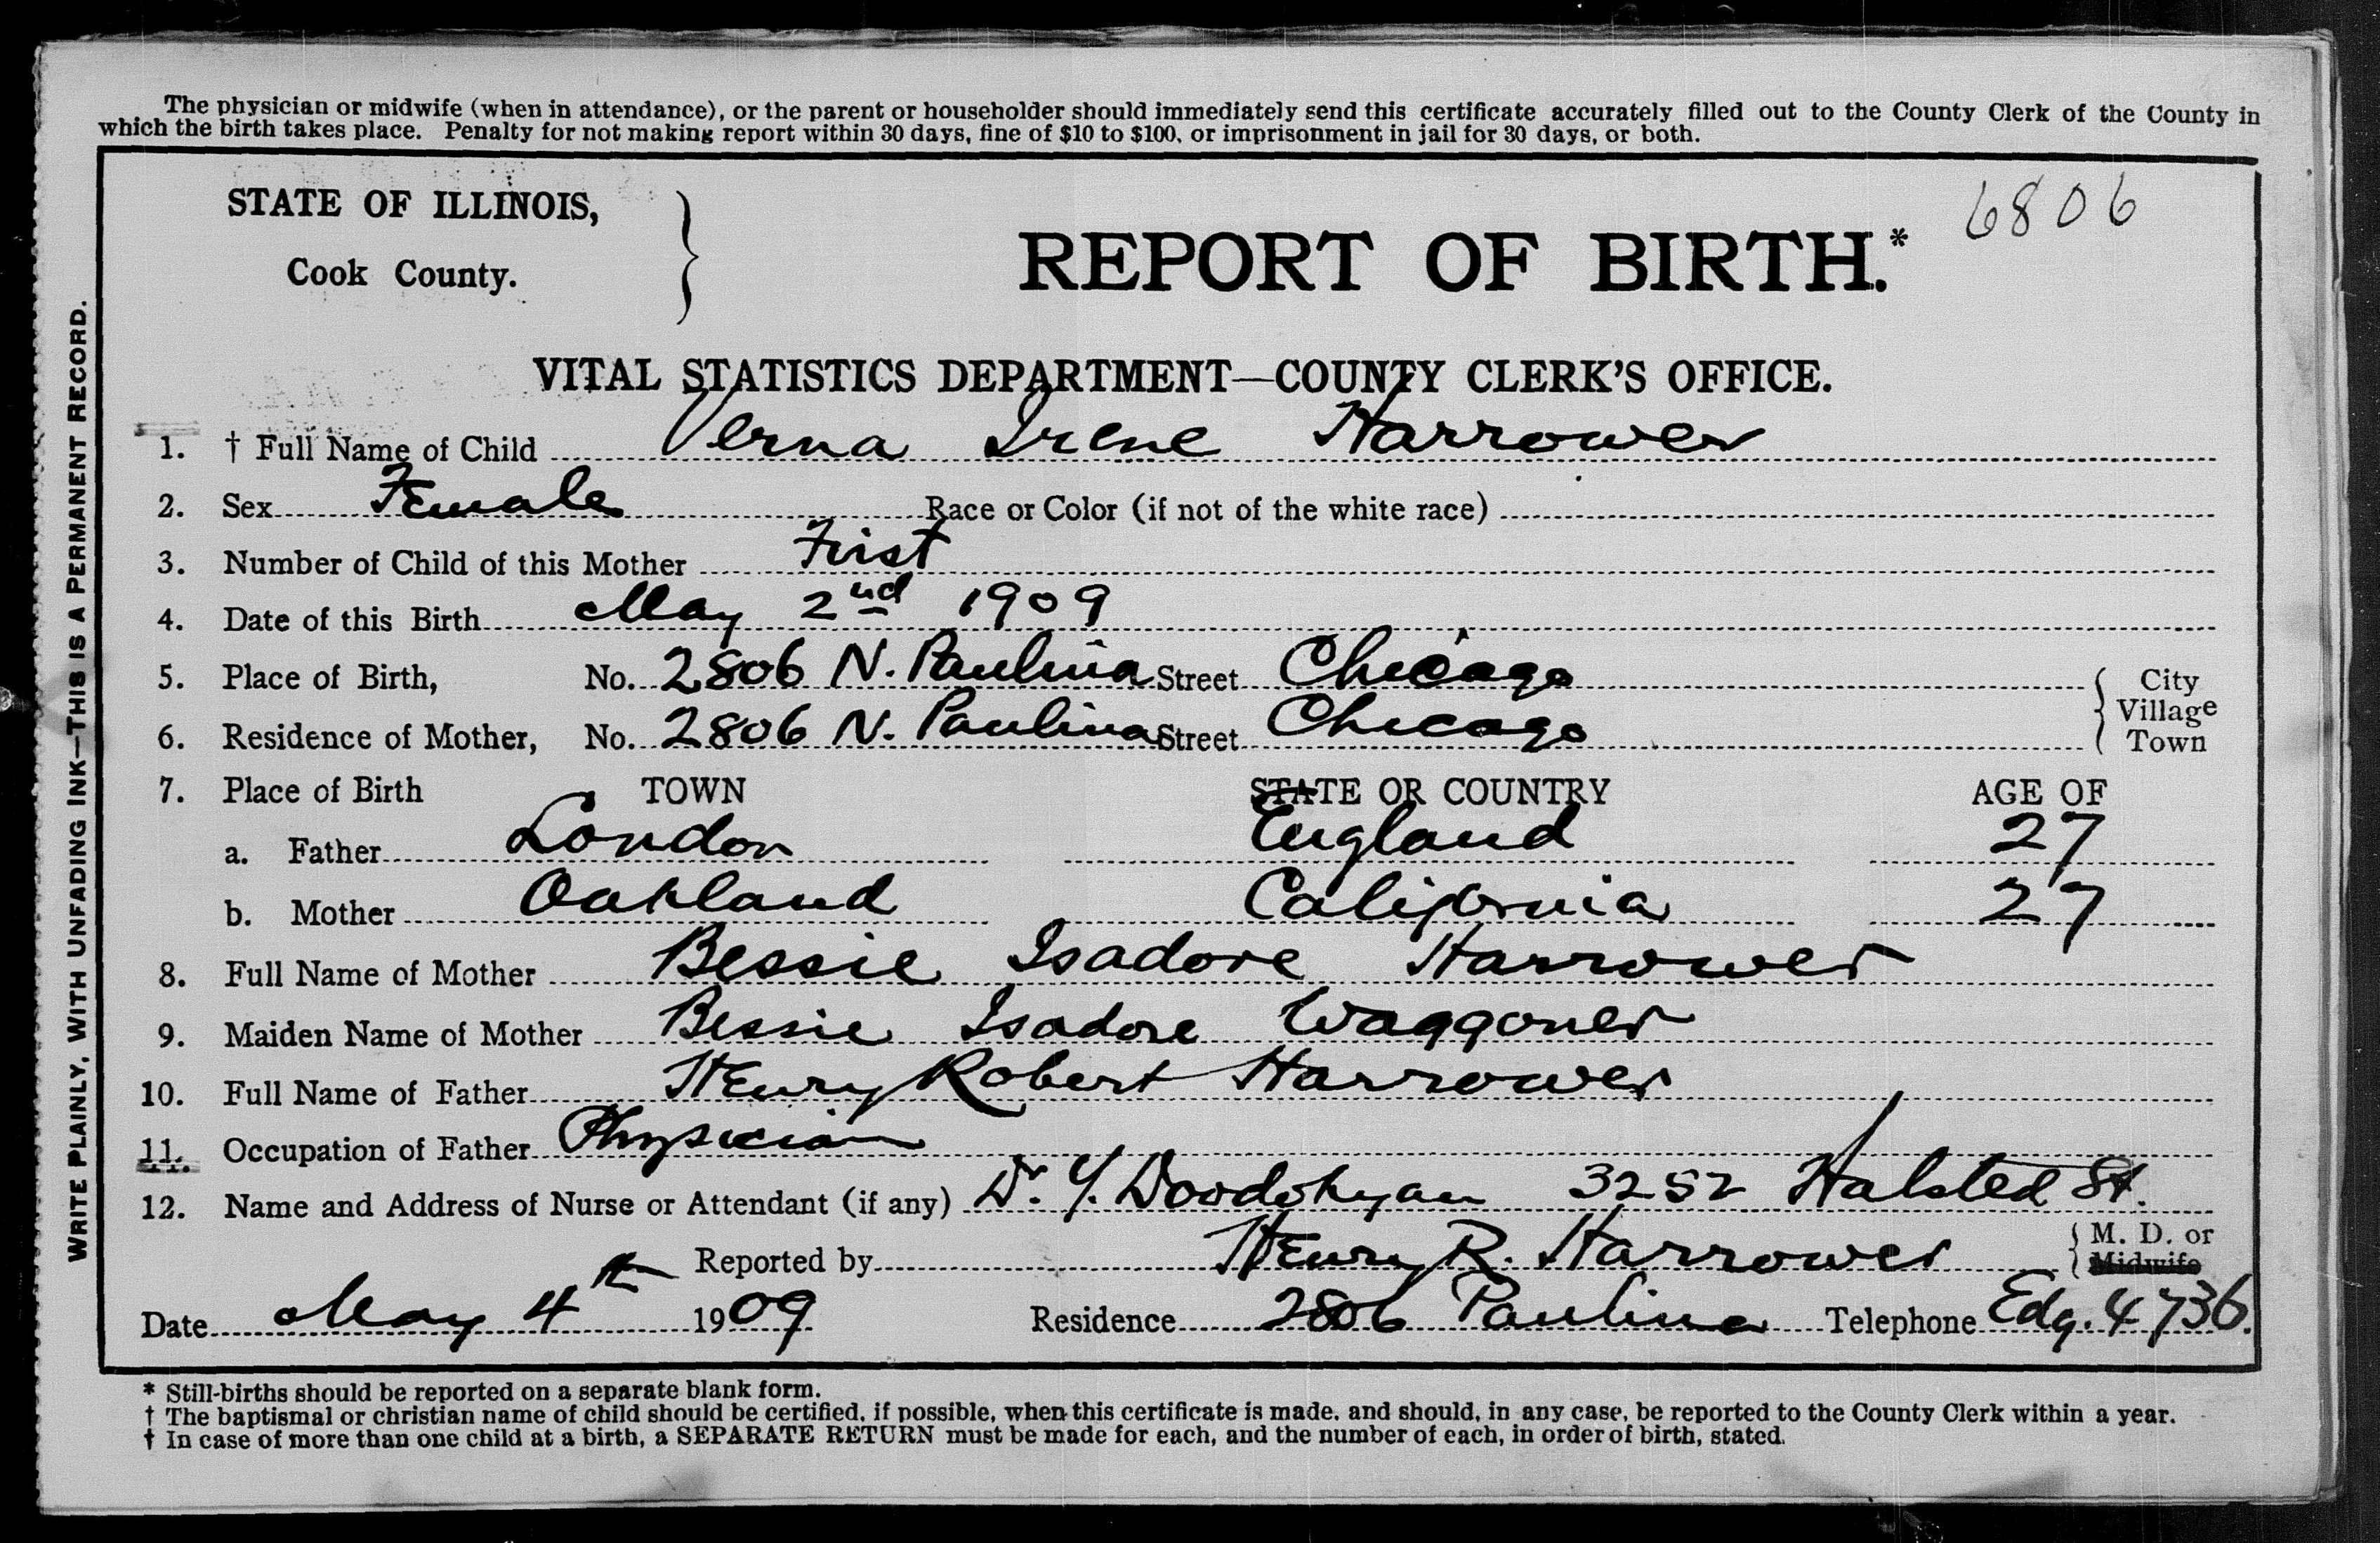 The physician or midwife (when in attendance), or the parent or householder should immediately send this certificate accurately filled out to the County Clerk of the County in
which the birth takes place. Penalty for not making report within 30 days, fine of $10 to $100, or imprisonment in jail for 30 days, or both.
STATE OF ILLINOIS,
Cook County.
6806
REPORT OF BIRTH.*
VITAL STATISTICS DEPARTMENT—COUNTY CLERK'S OFFICE.
1. † Full Name of Child Verna Irene Harrower
2. Sex Female Race or Color (if not of the white race)
3. Number of Child of this Mother First
4. Date of this Birth May 2nd 1909
5. Place of Birth, No. 2806 N. Paulina Street Chicago
6. Residence of Mother, No. 2806 N. Paulina Street Chicago
City
Village
Town
7. Place of Birth TOWN STATE OR COUNTRY AGE OF
a. Father London England 27
b. Mother Oakland California 27
8. Full Name of Mother Bessie Isadore Harrower
9. Maiden Name of Mother Bessie Isadore Waggoner
10. Full Name of Father Henry Robert Harrower
11. Occupation of Father Physician
12. Name and Address of Nurse or Attendant (if any) Dr. Y. 3252 Halsted St.
Reported by Henry R. Harrower M. D. or Midwife
Date May 4th 1909 Residence 2806 Paulina Telephone Edg. 4736.
* Still-births should be reported on a separate blank form.
† The baptismal or christian name of child should be certified, if possible, when this certificate is made, and should, in any case, be reported to the County Clerk within a year.
† In case of more than one child at a birth, a SEPARATE RETURN must be made for each, and the number of each, in order of birth, stated.
WRITE PLAINLY, WITH UNFADING INK—THIS IS A PERMANENT RECORD.